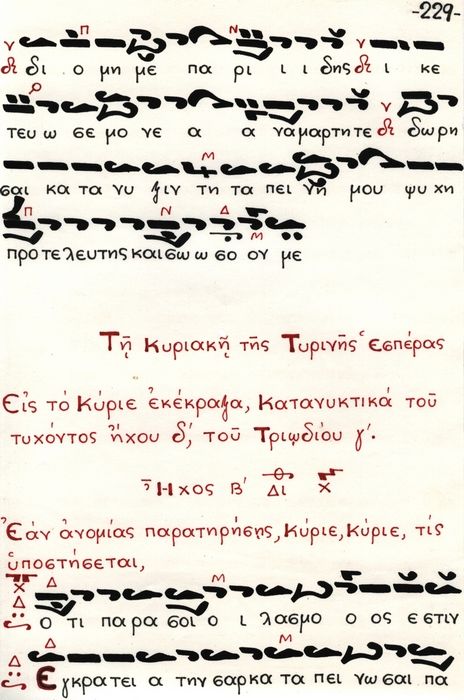 -229-
δι ο μη με πα ρι ι ι δης ι κε
τευ ω σε μο νε α α ναμαρτητε δωρη
σαι κα τα νυ ξιν τη τα πει νη μου ψυ χη
προ τε λευτης και σω ω σο ον με
Τῇ Κυριακῇ τῆς Τυρινῆς Ἑσπέρας
Εἰς τὸ Κύριε ἐκέκραξα, Κατανυκτικά τοῦ
τυχόντος ἤχου δ', τοῦ Τριῳδίου γ'.
Ἦχος Β' Δι
Ἐὰν ἀνομίας παρατηρήσῃς, Κύριε, Κύριε, τίς
ὑποστήσεται,
ο τι παρα σοι ο ι λασμο ο ος ε στιν
Εγκρατει α την σαρκα τα πει νω σαι πα